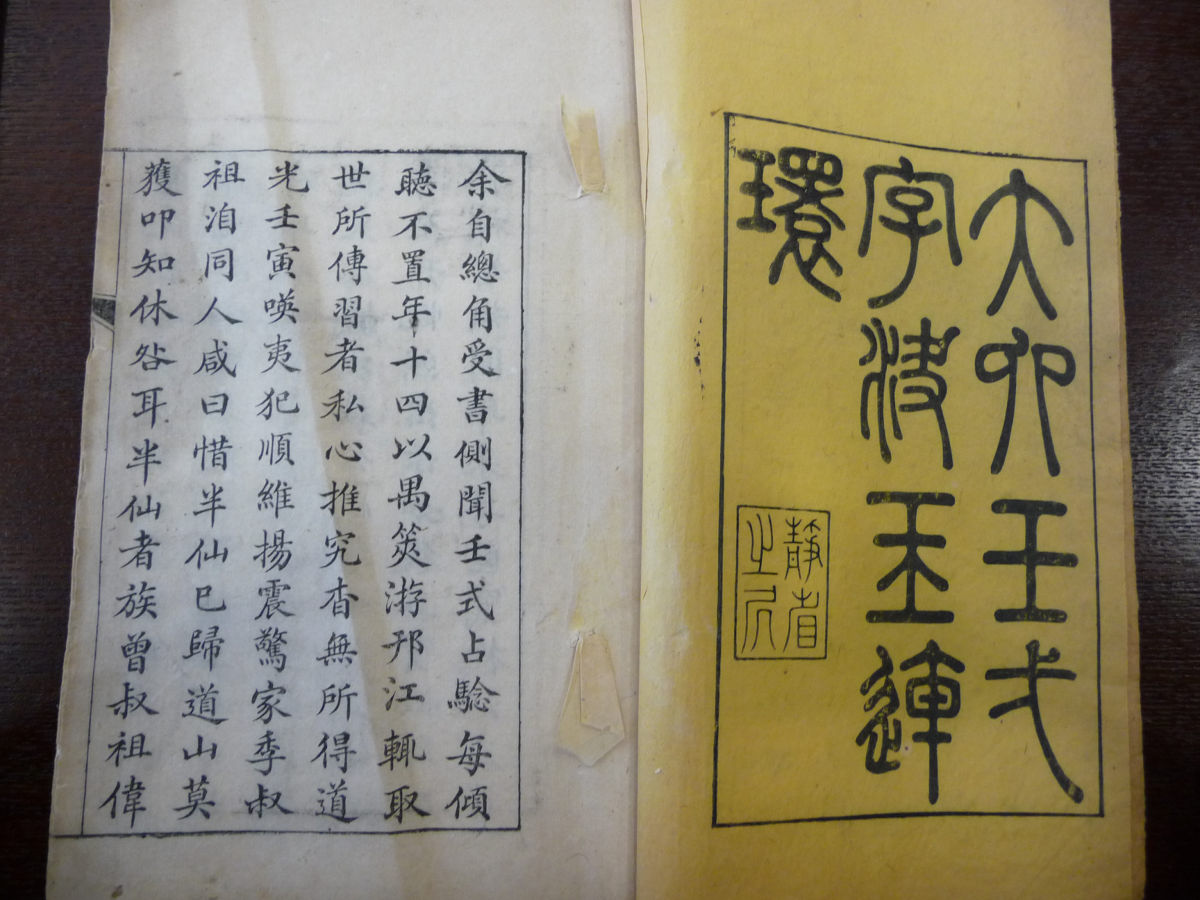 大六壬弌
字決玉連
環
靜者之
余自總角受書側聞壬式占騐每傾
聽不置年十四以禺筴游邗江輒取
世所傳習者私心推究杳無所得道
光壬寅𠸄夷犯順維揚震驚家季叔
祖洎同人咸曰惜半仙已歸道山莫
獲叩知休咎耳半仙者族曾叔祖偉